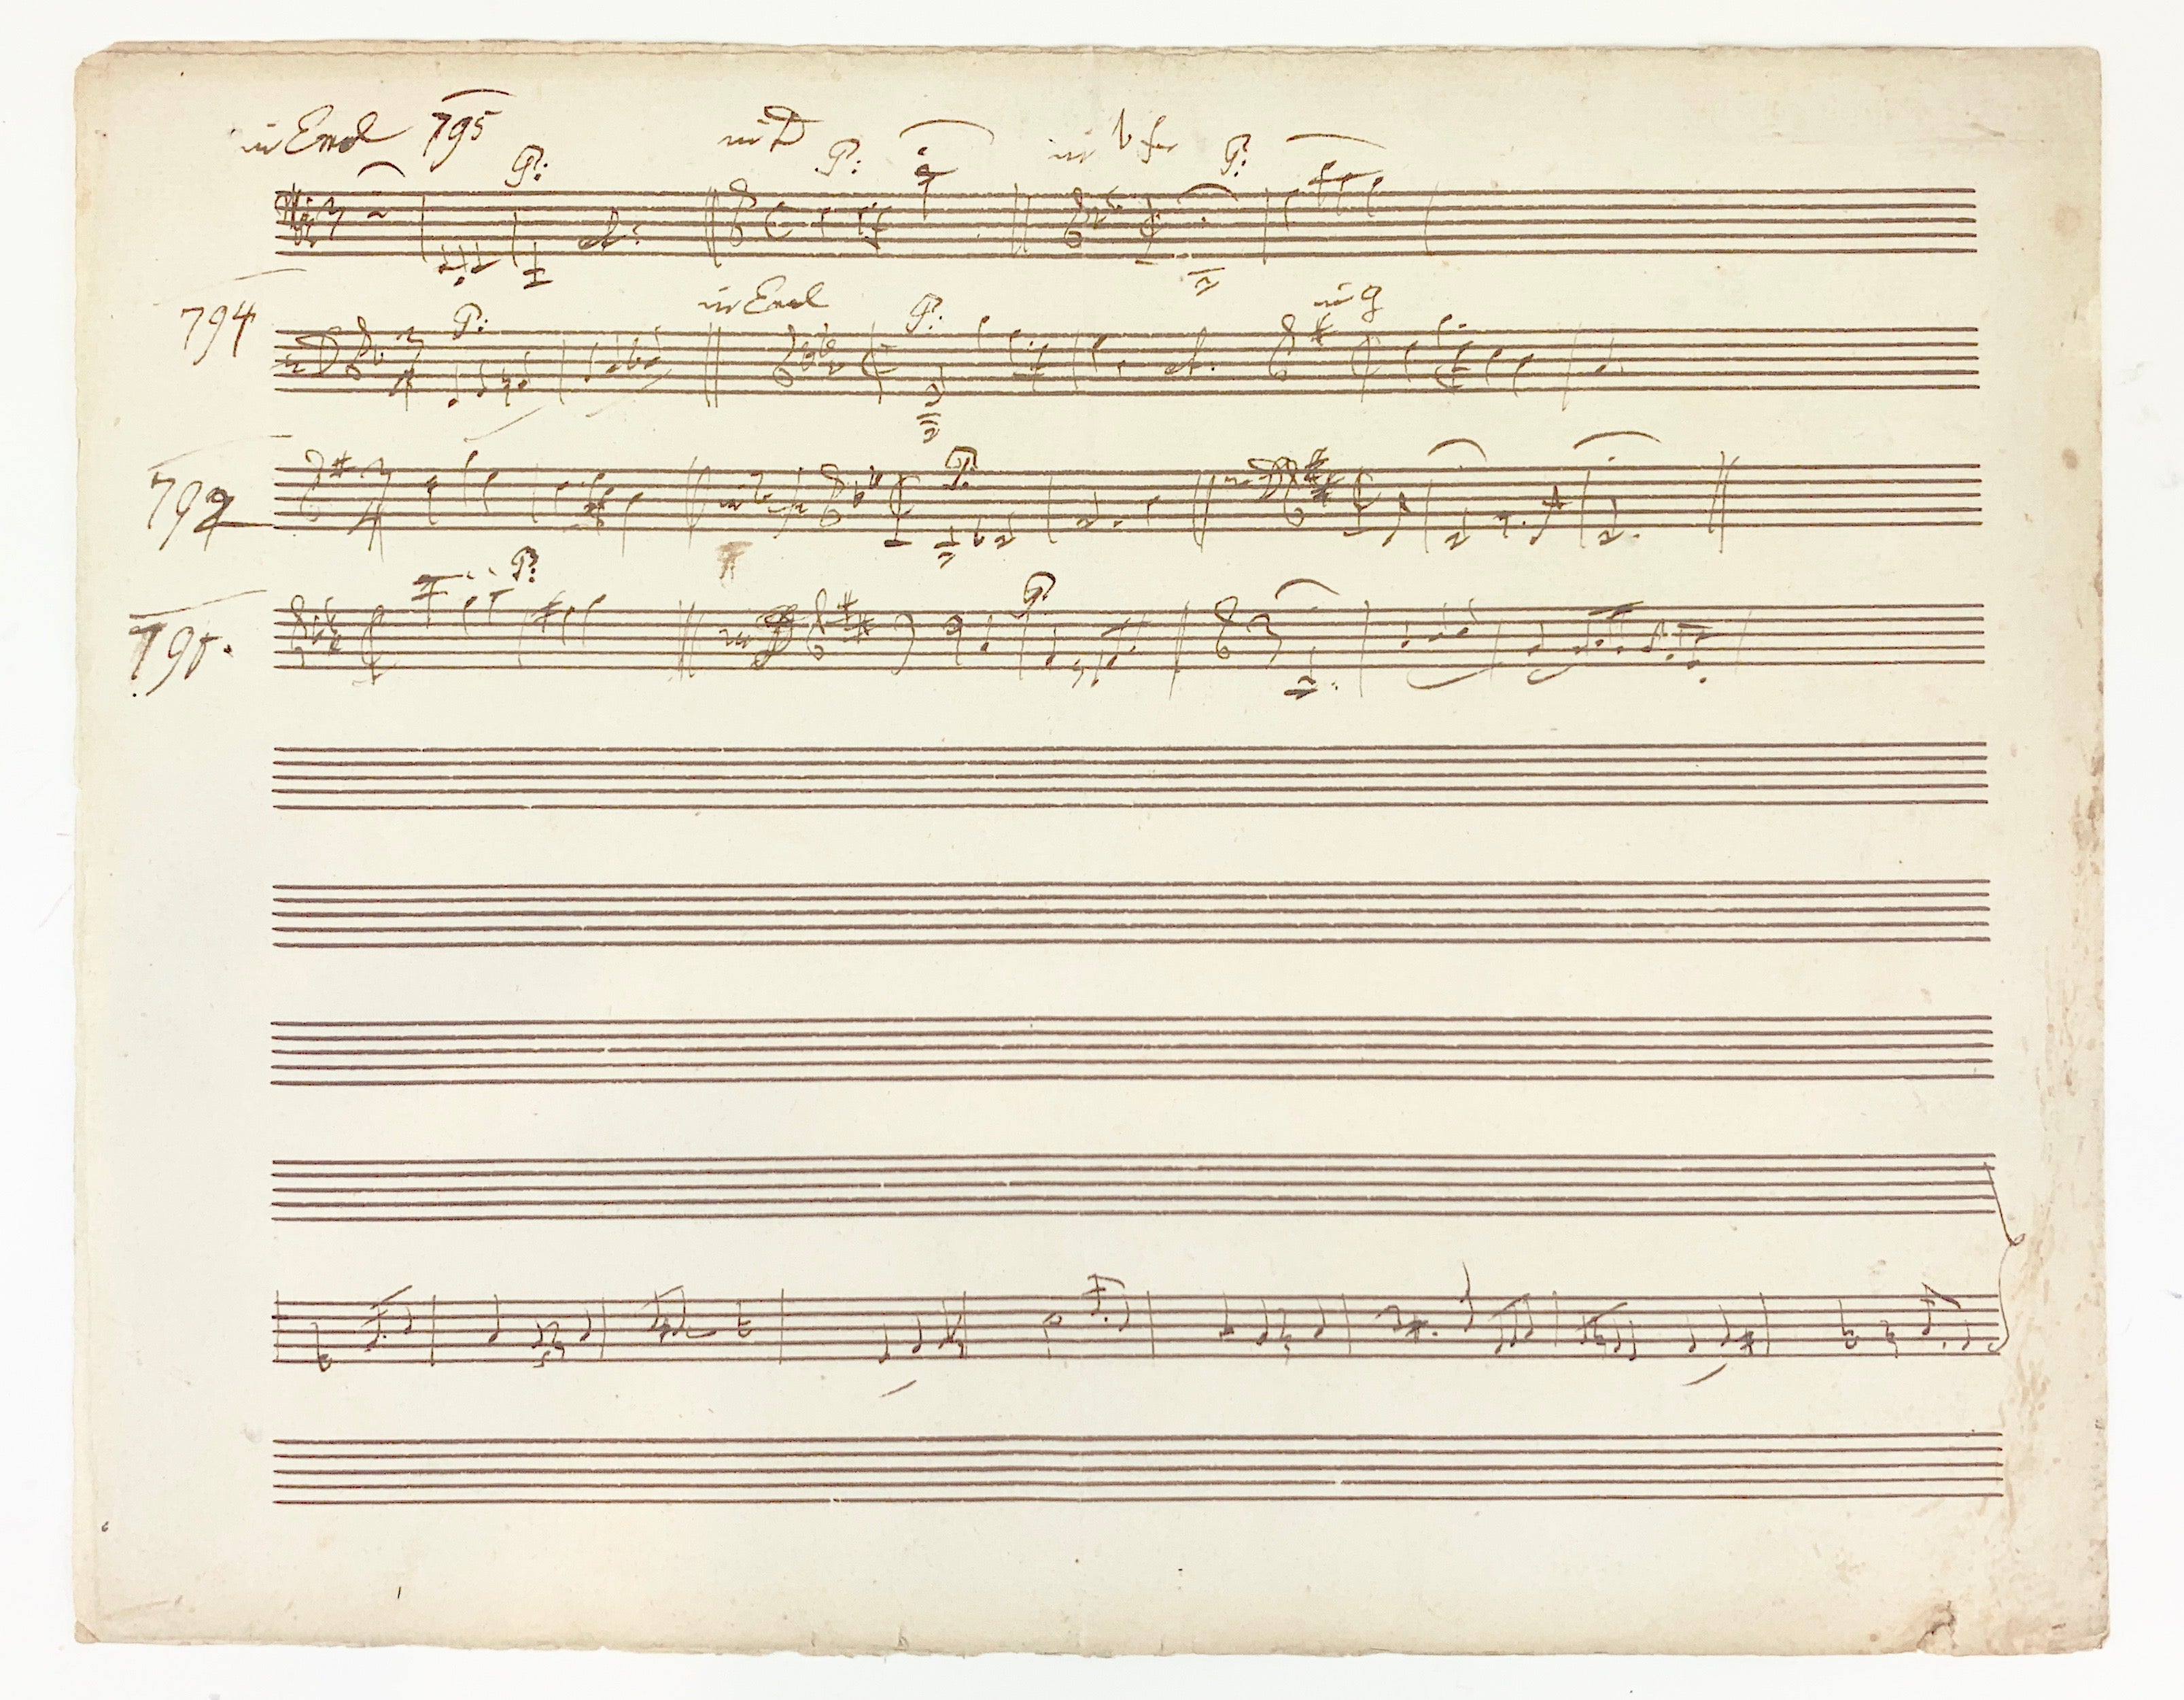 in Emol 795 in D in b fa
P: P: P:
in Emol in g
794 P: P:
792 P:
P:
791. P: